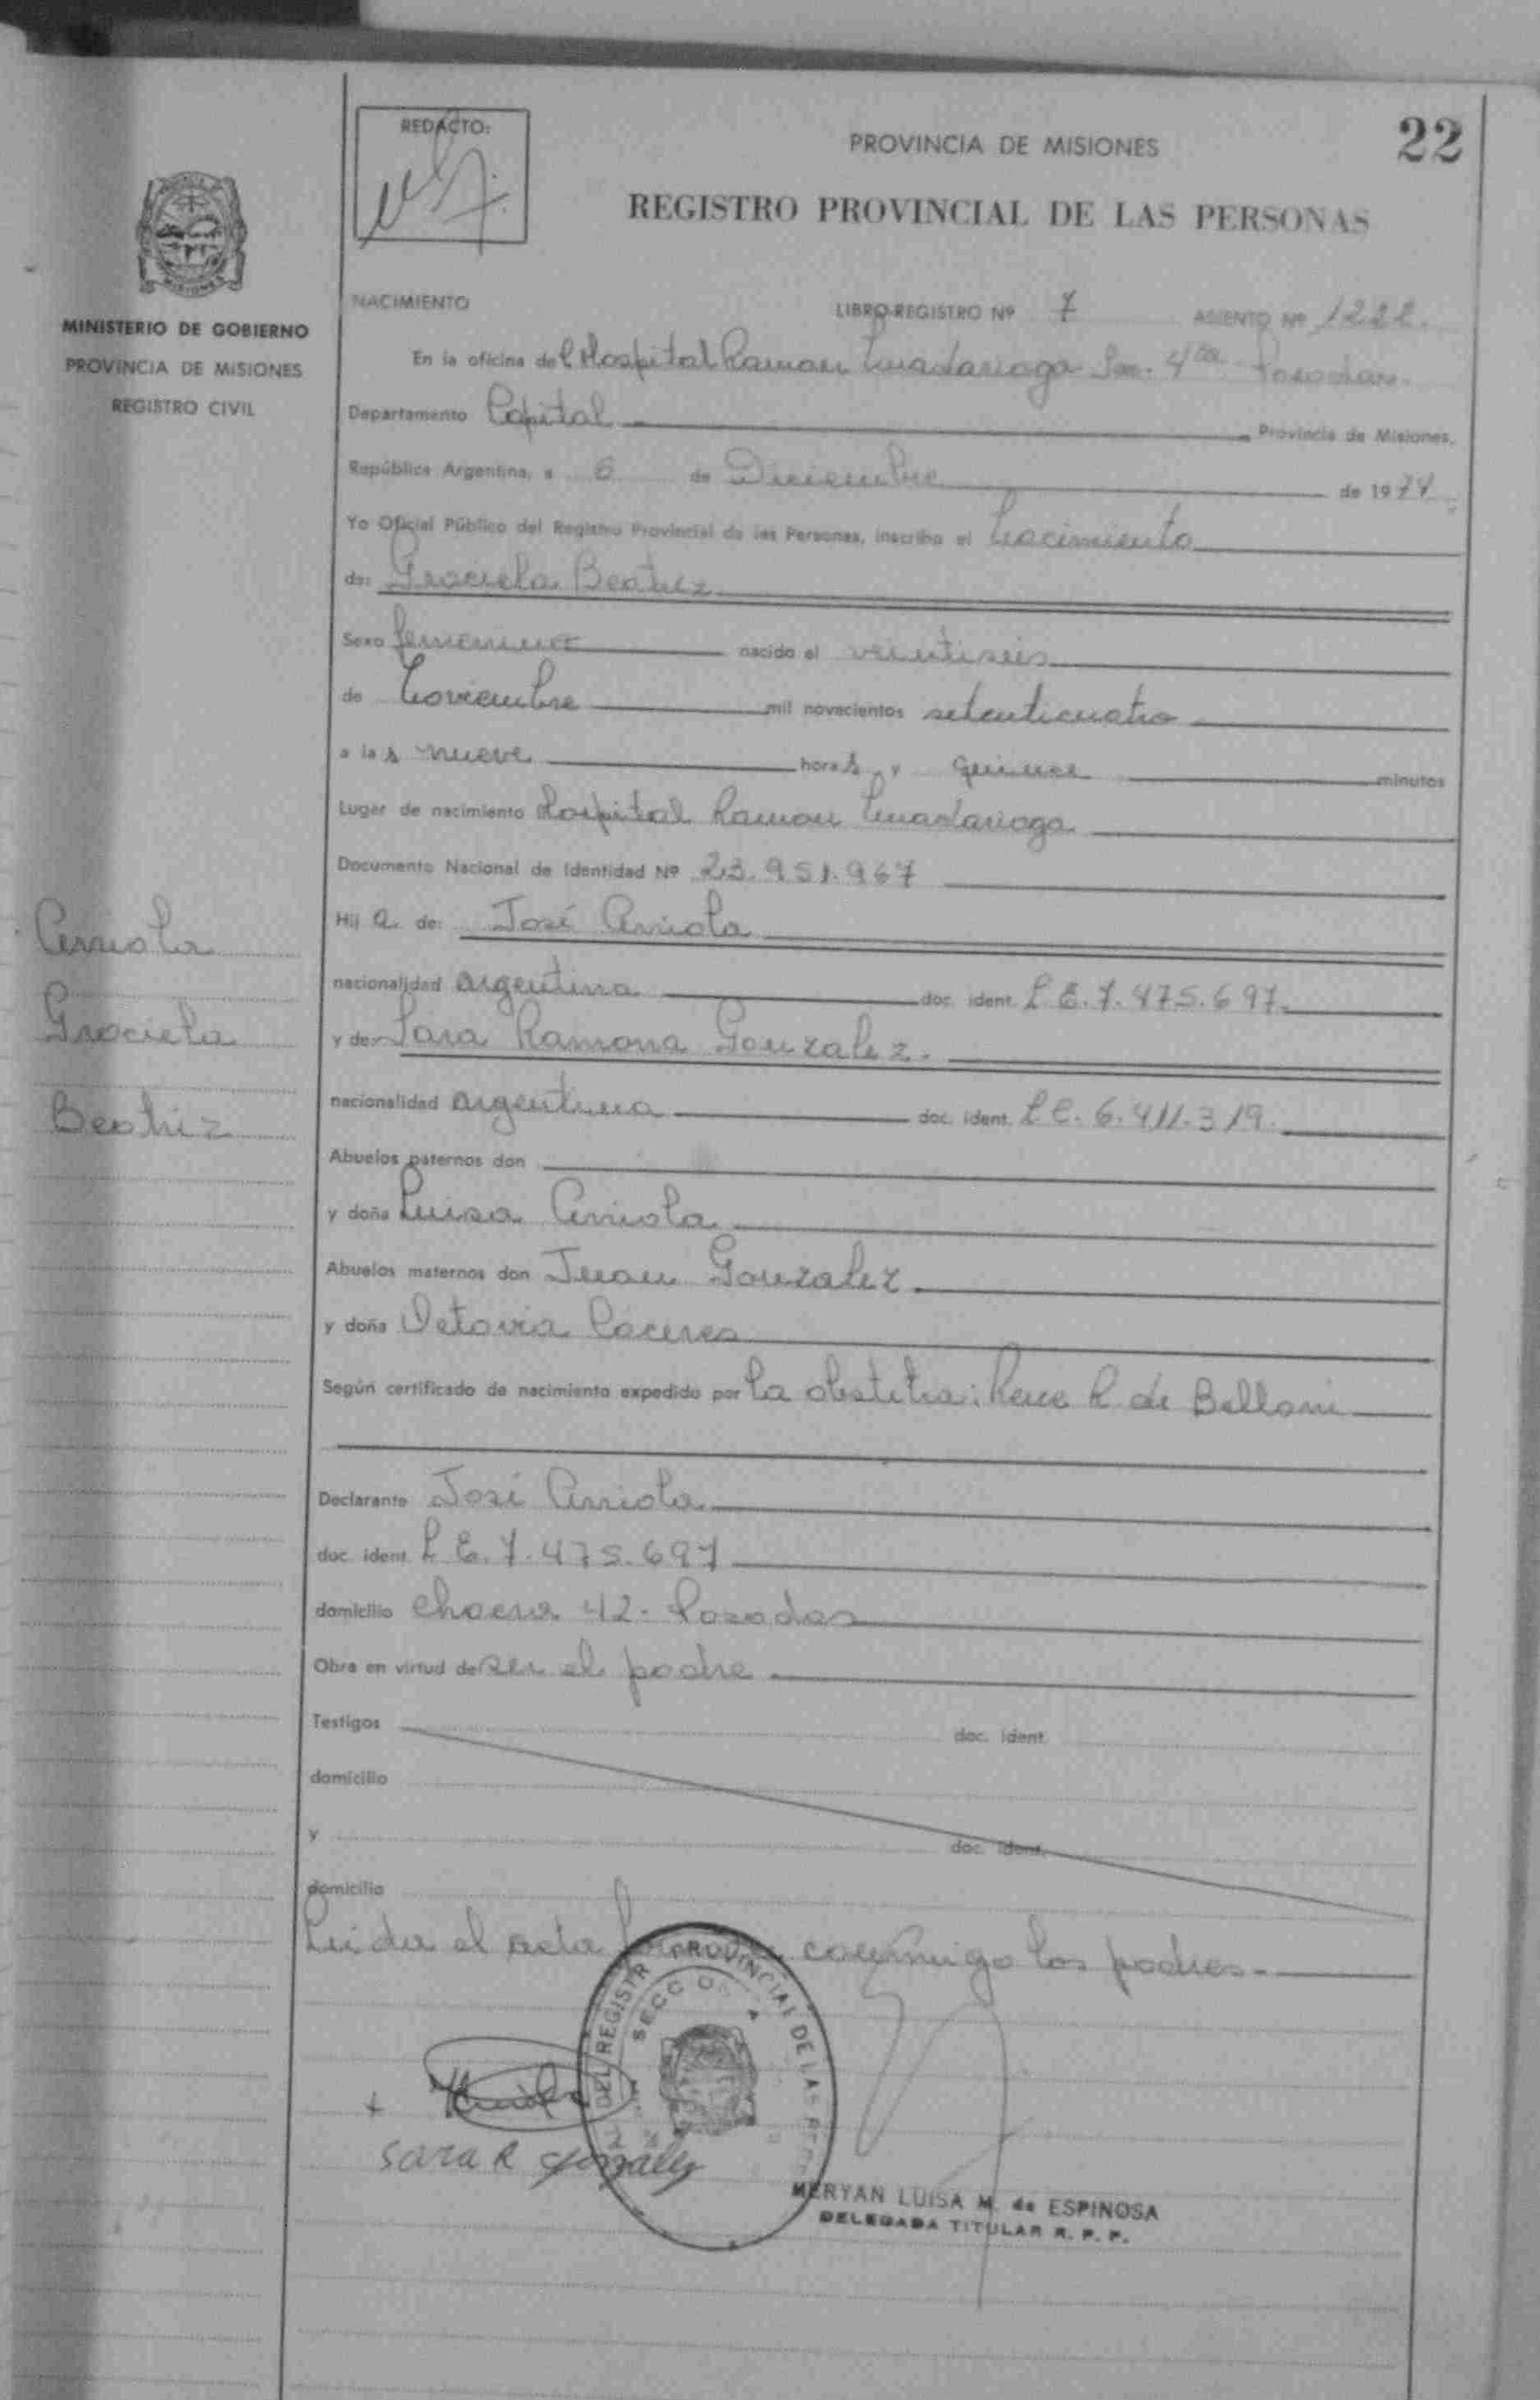 REDACTO:
PROVINCIA DE MISIONES
22
REGISTRO PROVINCIAL DE LAS PERSONAS
MINISTERIO DE GOBIERNO
PROVINCIA DE MISIONES
REGISTRO CIVIL
NACIMIENTO LIBRO-REGISTRO Nº 7 ASIENTO Nº 1222.
En la oficina del Hospital Ramon Madariaga Sec. 4ta Posadas.
Departamento Capital Provincia de Misiones,
República Argentina, a 6 de Diciembre de 1974.
Yo Oficial Público del Registro Provincial de las Personas, inscribo el Nacimiento
de: Graciela Beatriz
Sexo femenino nacido el veintiseis
de Noviembre mil novecientos setenticuatro
a las nueve horas y quince minutos
Lugar de nacimiento Hospital Ramon Madariaga
Documento Nacional de Identidad Nº 23.951.967
Hija de: José Arriola
nacionalidad argentina doc. ident. L E. 7.475.697.
y de: Sara Ramona Gonzalez.
nacionalidad argentina doc. ident. L C. 6.411.319.
Abuelos paternos don
y doña Luisa Arriola
Abuelos maternos don Juan Gonzalez
y doña Octavia Caceres
Según certificado de nacimiento expedido por la obstetra: Rene R. de Belloni
Declarante José Arriola
doc. ident. L E. 7.475.697
domicilio Chacra 42- Posadas
Obra en virtud de ser el padre
Testigos doc. ident.
domicilio
y doc. ident.
domicilio
Leida el acta conmigo los padres.-
Arriola
Graciela
Beatriz
DEL REGISTR PROVINCIAL DE LAS
SECC
Sara R Gonzalez
MERYAN LUISA M. de ESPINOSA
DELEGADA TITULAR R. P. P.